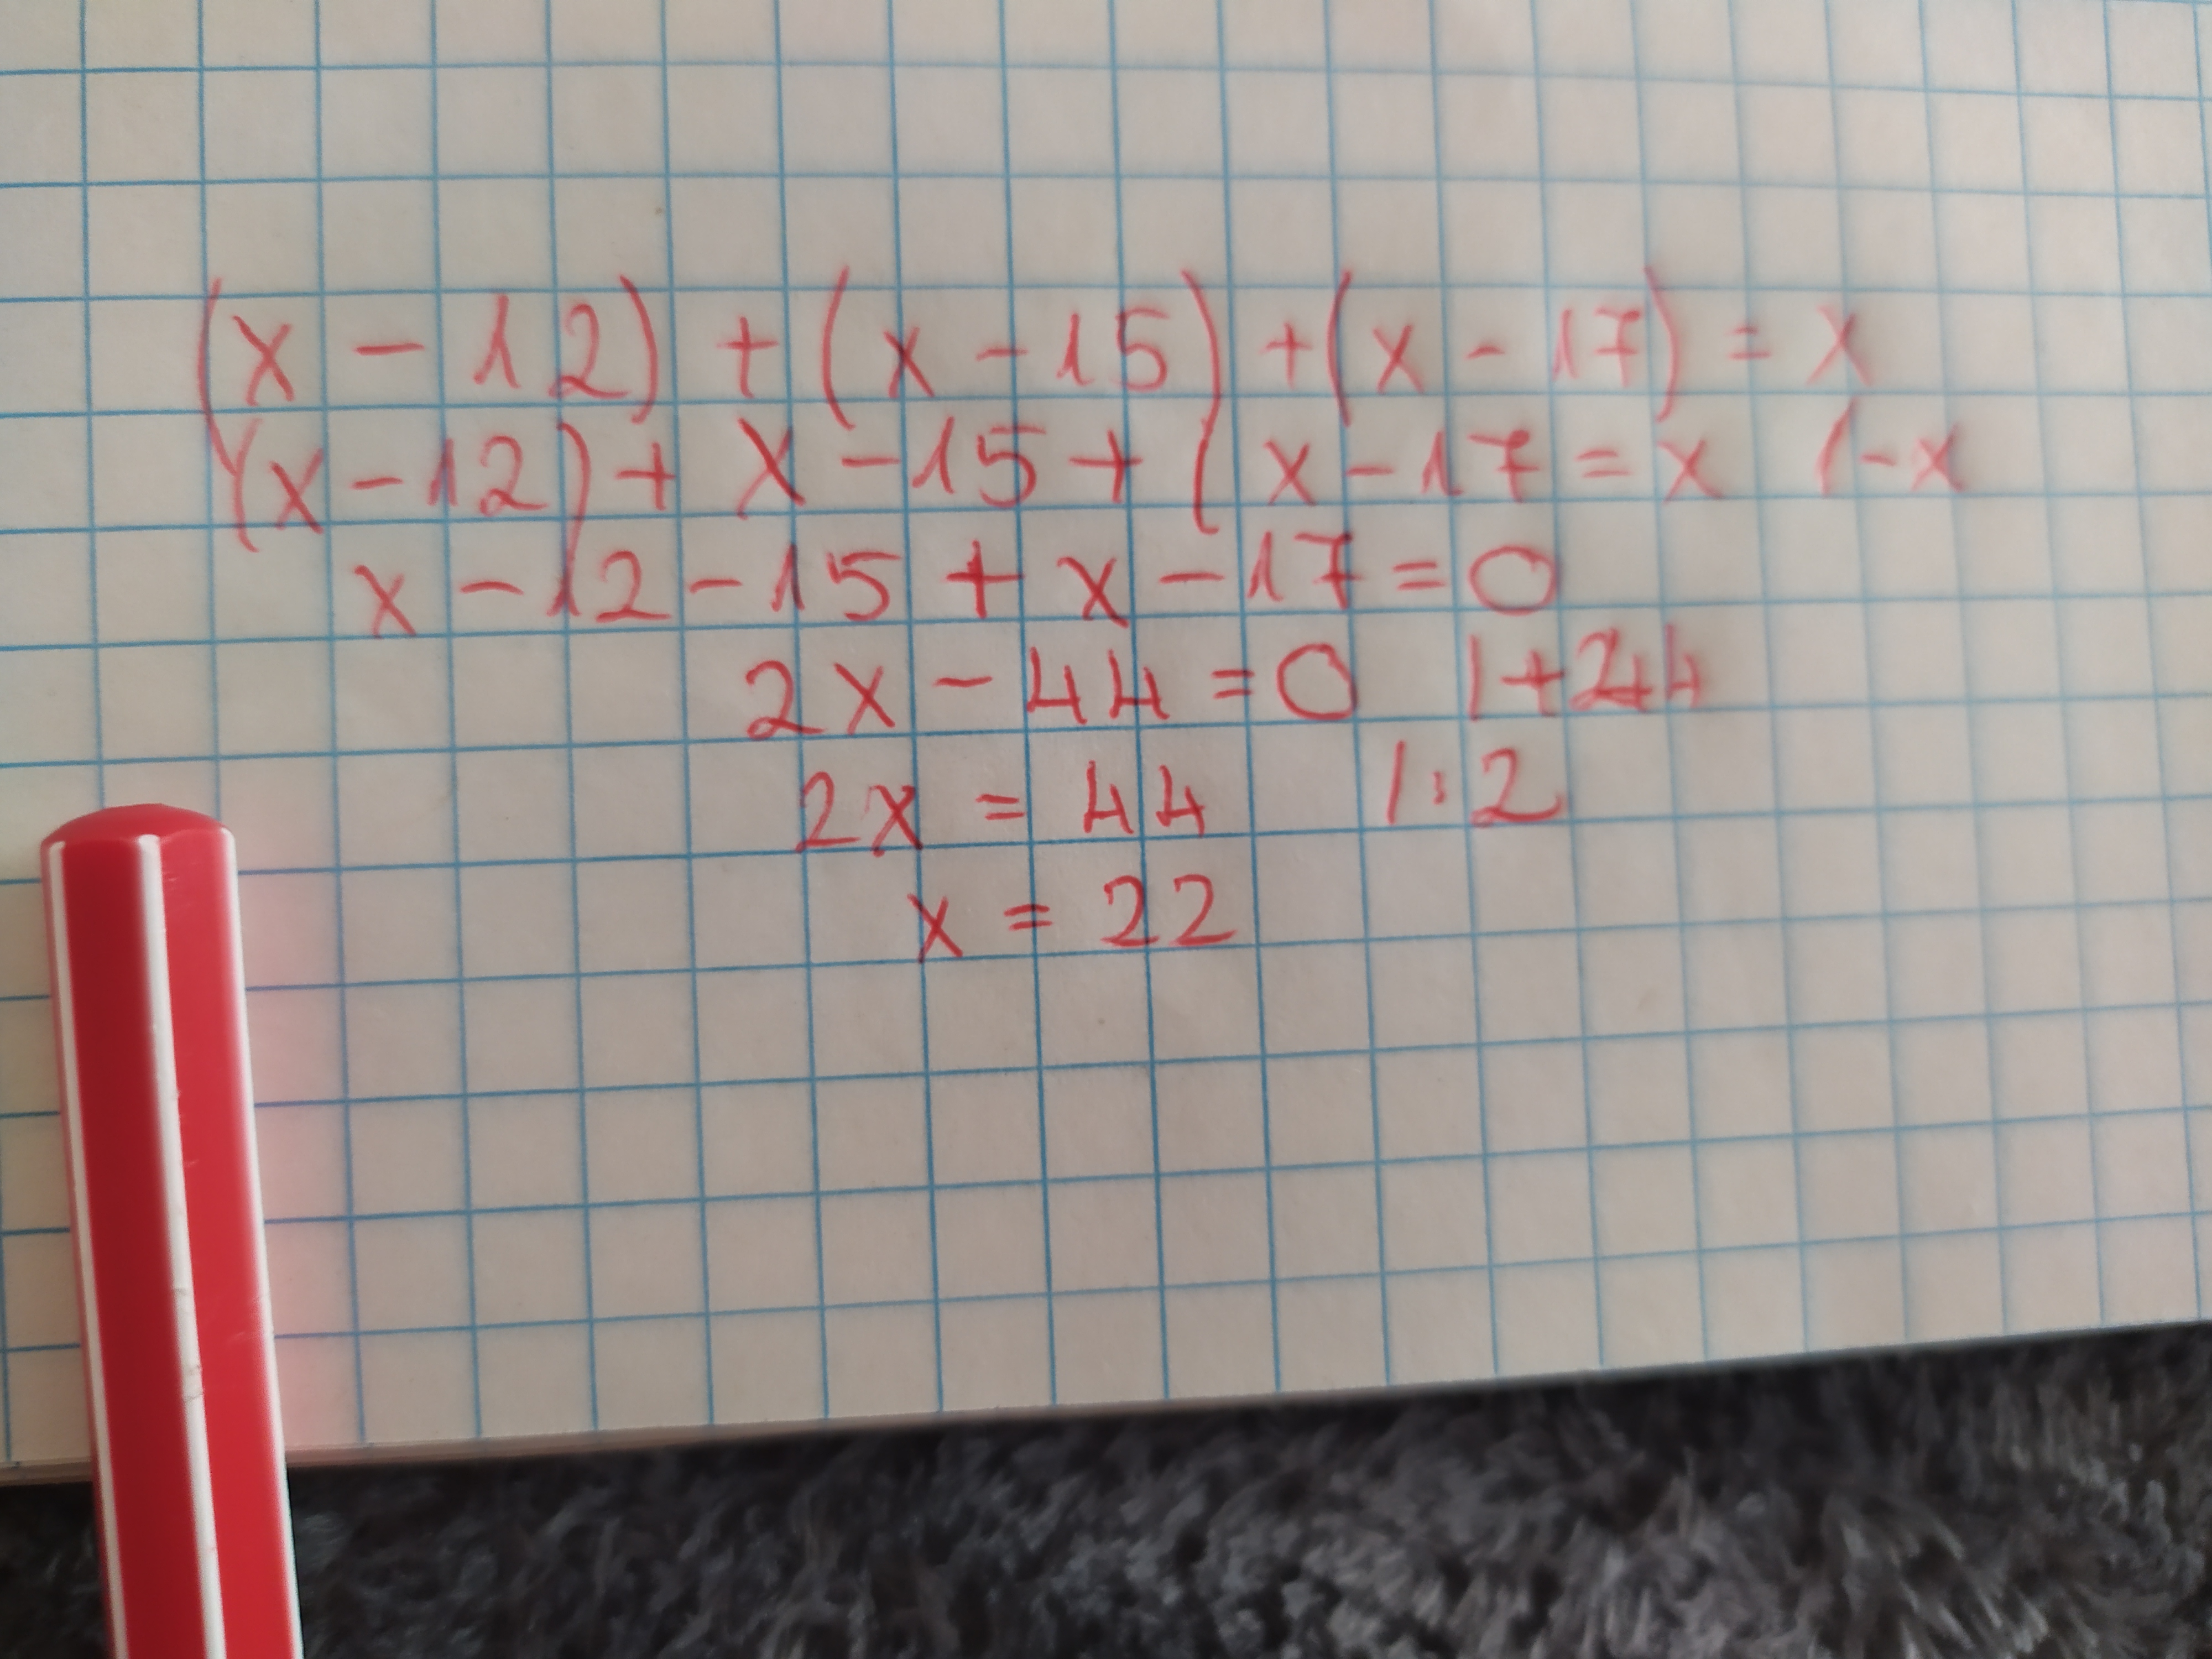 (x - 12) + (x - 15) + (x - 17) = x
(x - 12) + x - 15 + (x - 17 = x /-x
x - 12 - 15 + x - 17 = 0
2x - 44 = 0 |+44
2x = 44 |:2
x = 22